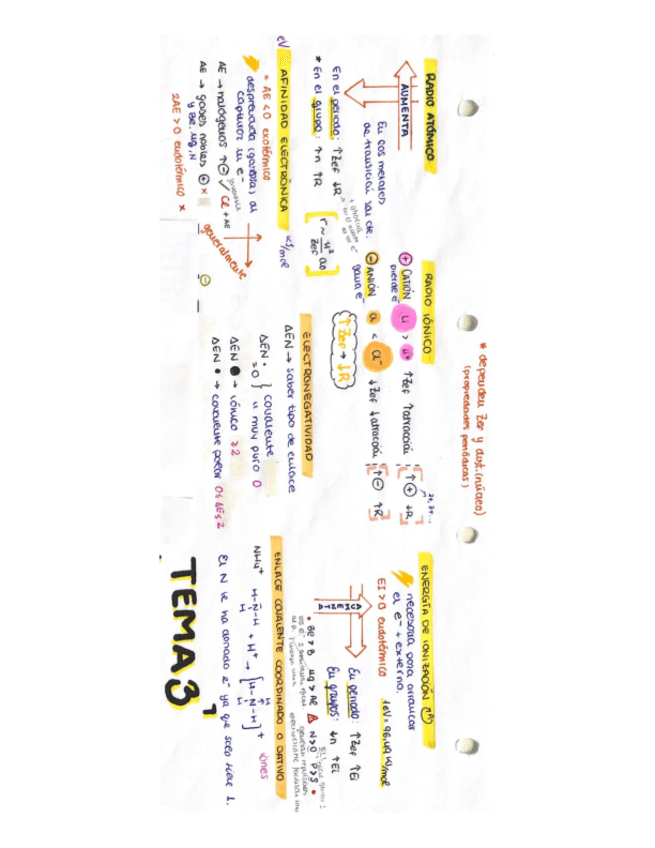 * dependen Zef y dist. (núcleo)
(propiedades periódicas)
RADIO ATÓMICO
AUMENTA
En los metales
de transición
En el periodo: ↑Zef ↓R
* En el grupo: ↑n ↑R
r ~ n²/Zef a₀
RADIO IÓNICO
⊕ CATIÓN Li > Li⁺ ↑Zef ↑atracción [↑⊕ ↓R]
pierde e⁻
2+, 3+...
⊖ ANIÓN Cl < Cl⁻ ↓Zef ↓atracción [↑⊖ ↑R]
gana e⁻
↑Zef → ↓R
ENERGÍA DE IONIZACIÓN
necesaria para arrancar
el e⁻ + externo.
EI > 0 endotérmico
1eV = 96.49 KJ/mol
AUMENTA
En periodo: ↑Zef ↑EI
En grupos: ↓n ↑EI
• Be > B Mg > Al N > O P > S •
eV
AFINIDAD ELECTRÓNICA
KJ/mol
* AE < 0 exotérmico
desprendida (gaseosa) al
capturar un e⁻
AE → halógenos ↑⊖ ✓ Cl + AE
AE → gases nobles ⊕ ×
y Be, Mg, N
2AE > 0 endotérmico ×
generalmente
ELECTRONEGATIVIDAD
ΔEN → saber tipo de enlace
ΔEN • = 0 } covalente
" muy puro 0
ΔEN ● → iónico >2
ΔEN • → covalente polar
ENLACE COVALENTE COORDINADO O DATIVO
NH₄⁺
H-N-H + H⁺ → [H-N-H]⁺ iones
H
H
H
El N le ha donado e⁻ ya que solo tiene 1.
TEMA 3